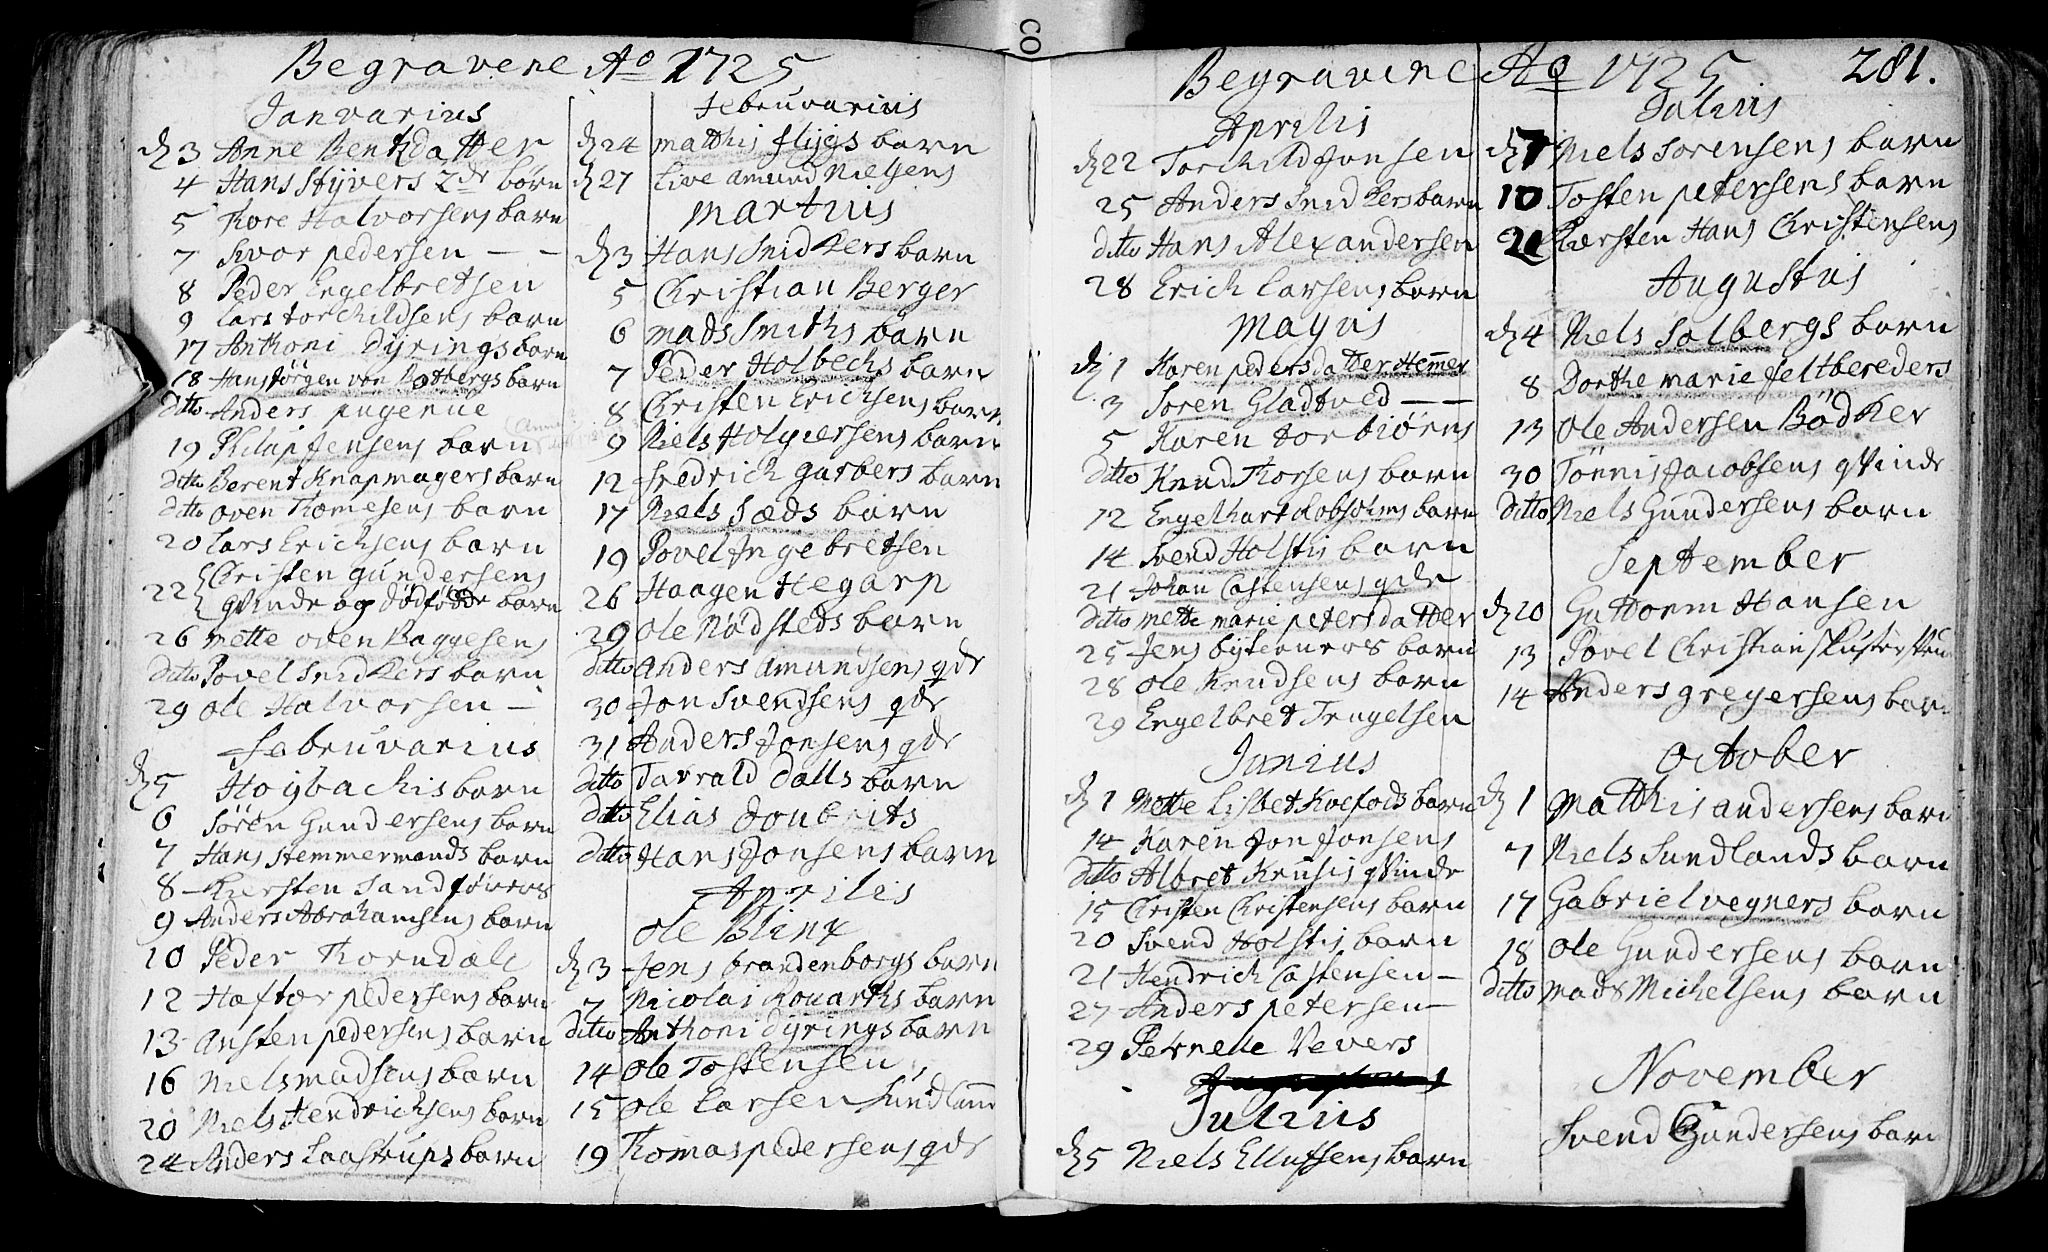 Begravene Ao 1725
Janvarius
d 3 Anne Bentzdatter
4 Hans Styvers 2de börn
5 Tore Halvorsens barn
7 Ivor pedersen - -
8 Peder Engelbretsen
9 Lars torchildsens barn
17 Anthoni Dyrings barn
18 Hans Jörgen von Botbergs barn
ditto Anders
19 Philip Jensens barn
ditto Berent Knapmagers barn
ditto oven Tomesens barn
20 Lars Erichsens barn
22 Christen gundersens
qvinde og dödfödde barn
26 Mette oven Baggesens
ditto Povel Snidkers barn
29 Ole Halvorsen -
Februvarius
d 5 Hoybachis barn
6 Sören Gundersens barn
7 Hans stemmermands barn
8 Kiersten Sandförers
9 Anders Abrahamsens barn
10 Peder Korndal
12 Hafter pedersens barn
13 Austen pedersens barn
16 Niels madsens barn
20 Niels Hendrichsens barn
24 Anders Laastrups barn
Februvarius
d 24 matthis flygs barn
d 27 Live Amund Nielsens
Martius
d 3 Hans Snidkers barn
5 Christian Berger
6 mads Smiths barn
7 Peder Holbechs barn
8 Christen Erichsens barn
9 Niels Holgersens barn
12 Fredrich garbers barn
17 Niels Sæds barn
19 Povel Ingebretsen
26 Haagen Hegarp
29 Ole Nödsteds barn
ditto Anders Amundsens qde
30 Jon Svendsens qde
31 Anders Jonsens qde
ditto Tarrald Dalls barn
ditto Elias Joubrits
ditto Hans Jonsens barn
Aprilis
Ole Blinx
d 3 Jens brandenborgs barn
7 Nicolai Rouarths barn
ditto Anthoni dyrings barn
14 Ole Tostensen
15 Ole Larsen Sundland
19 Tomas pedersens qde
Begravene Ao 1725 281.
Aprilis
d 22 Torchild Jonsen
25 Anders Snidkers barn
ditto Hans Alexandersen
28 Erich Larsens barn
Mayus
d 1 Karen pedersdatter Hemmer
3 Soren Gladtved - -
5 Karen Torbiörns
ditto Knud Torsens barn
12 Engelhart Robsohms barn
14 Svend Holstis barn
21 Johan Castensens qde
ditto Mette marie petersdatter
25 Jens byteners barn
28 Ole Knudsens barn
29 Engelbret Trugelsen
Junius
d 1 Mette Lisbet Koefods barn
14 Karen Jon Jonsens
ditto Albret Krusis qvinde
15 Christen Christensens barn
20 Svend Holstis barn
21 Hendrich Castensen -
27 Anders petersen -
29 Pernelle Vevers
Julius
d 5 Niels Ellufsens barn
Julius
d 7 Niels Sorensens barn
10 Tosten petersens barn
21 Kiersten Hans Christensens
Augustus
d 4 Niels Solbergs barn
8 Dorthe marie feltbereders
13 Ole Andersen Bödker
30 Tönnis Jacobsens qvinde
ditto Niels Gundersens barn
September
d 20 Guttorm Hansen
13 Povel Christian
14 Anders gregersens barn
October
d 1 Matthis andersens barn
7 Niels Sundlands barn
17 Gabriel vegners barn
18 Ole Gundersens barn
ditto mads Michelsens barn
November
Svend Gundersens barn